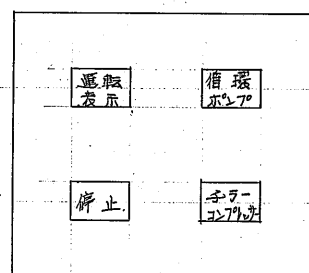 運転
表示
循環
ポンプ
停止.
チラー
コンプレッサー